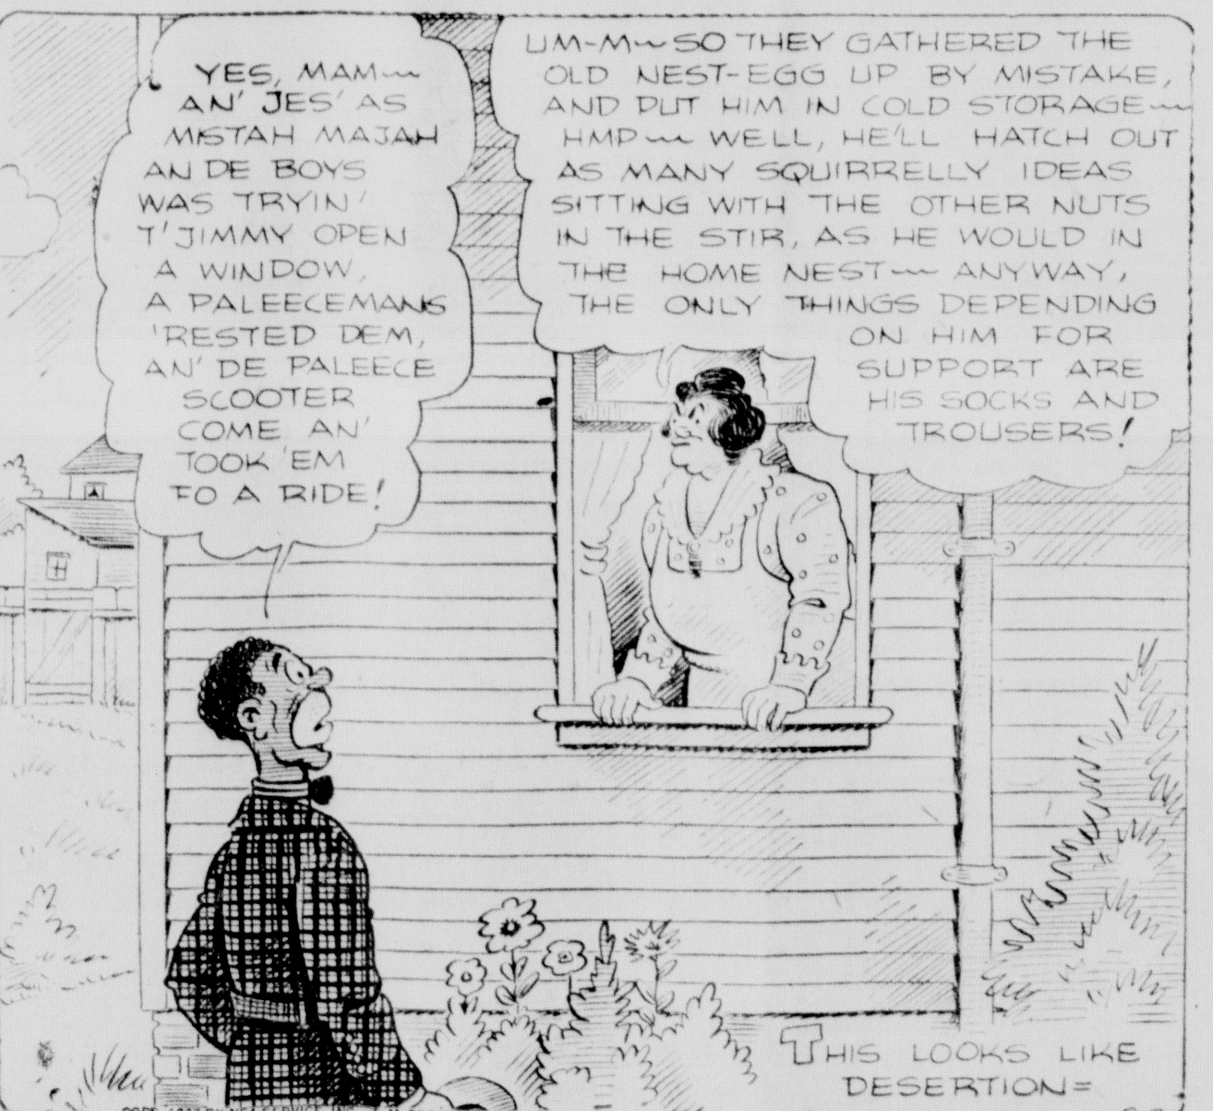 YES, MAM~
AN' JES' AS
MISTAH MAJAH
AN DE BOYS
WAS TRYIN'
T' JIMMY OPEN
A WINDOW,
A PALEECEMANS
'RESTED DEM,
AN' DE PALEECE
SCOOTER
COME AN'
TOOK 'EM
FO A RIDE!
UM-M~ SO THEY GATHERED THE
OLD NEST-EGG UP BY MISTAKE,
AND PUT HIM IN COLD STORAGE~
HMP~ WELL, HE'LL HATCH OUT
AS MANY SQUIRRELLY IDEAS
SITTING WITH THE OTHER NUTS
IN THE STIR, AS HE WOULD IN
THE HOME NEST~ ANYWAY,
THE ONLY THINGS DEPENDING
ON HIM FOR
SUPPORT ARE
HIS SOCKS AND
TROUSERS!
THIS LOOKS LIKE
DESERTION=
BY NEA SERVICE, INC.